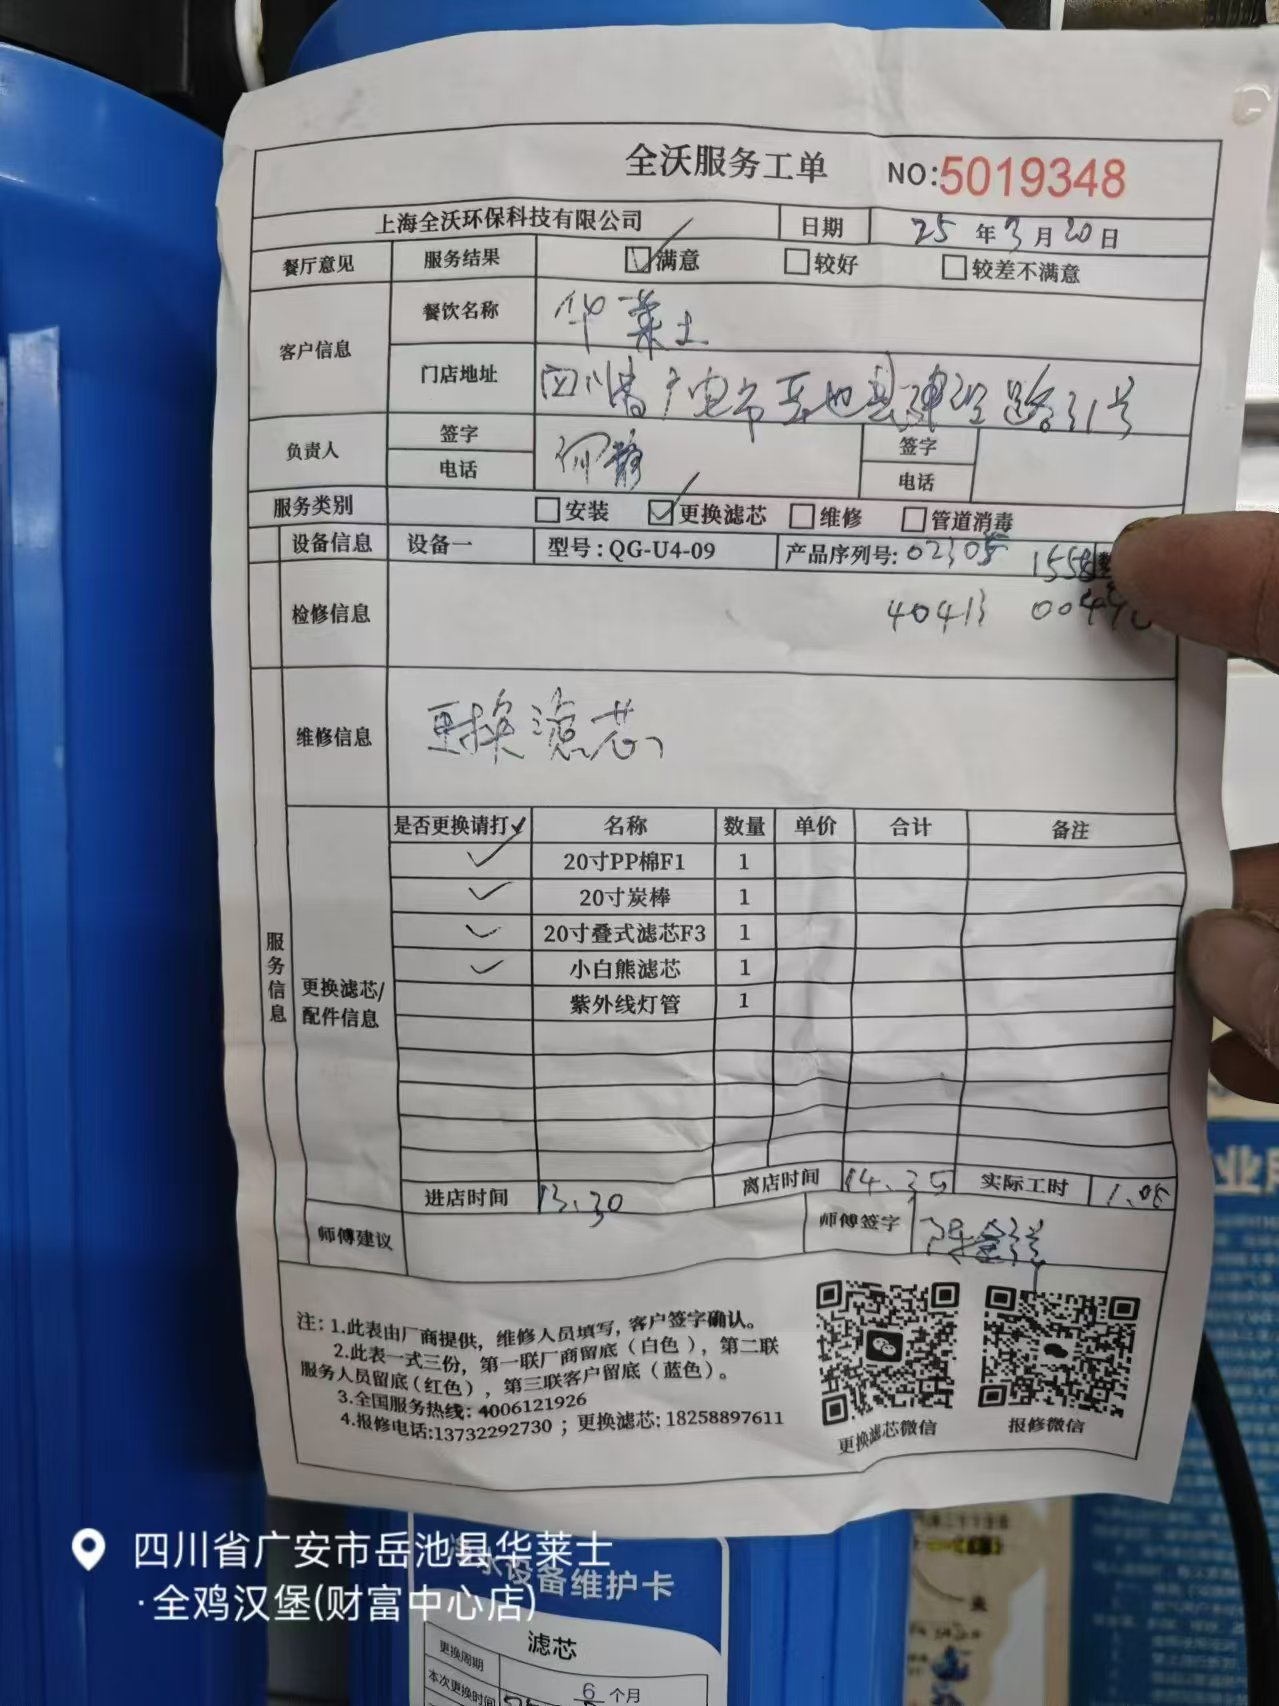 全沃服务工单 NO:5019348
上海全沃环保科技有限公司 日期 25年3月20日
餐厅意见 服务结果 满意 较好 较差不满意
客户信息 餐饮名称 华莱士
门店地址 四川省广安市岳池县建设路31号
负责人 签字 何静 签字
电话 电话
服务类别 安装 更换滤芯 维修 管道消毒
设备信息 设备一 型号:QG-U4-09 产品序列号: 02305 1558
检修信息 40413
维修信息 更换滤芯
服务信息
更换滤芯/配件信息
是否更换请打✓ 名称 数量 单价 合计 备注
✓ 20寸PP棉F1 1
✓ 20寸炭棒 1
✓ 20寸叠式滤芯F3 1
✓ 小白熊滤芯 1
紫外线灯管 1
进店时间 13.30 离店时间 14.35 实际工时 1.05
师傅建议 师傅签字
注: 1.此表由厂商提供，维修人员填写，客户签字确认。
2.此表一式三份，第一联厂商留底（白色），第二联
服务人员留底（红色），第三联客户留底（蓝色）。
3.全国服务热线: 4006121926
4.报修电话:13732292730 ；更换滤芯: 18258897611
更换滤芯微信 报修微信
四川省广安市岳池县华莱士
·全鸡汉堡(财富中心店)
水设备维护卡
滤芯
更换周期 6个月
本次更换时间